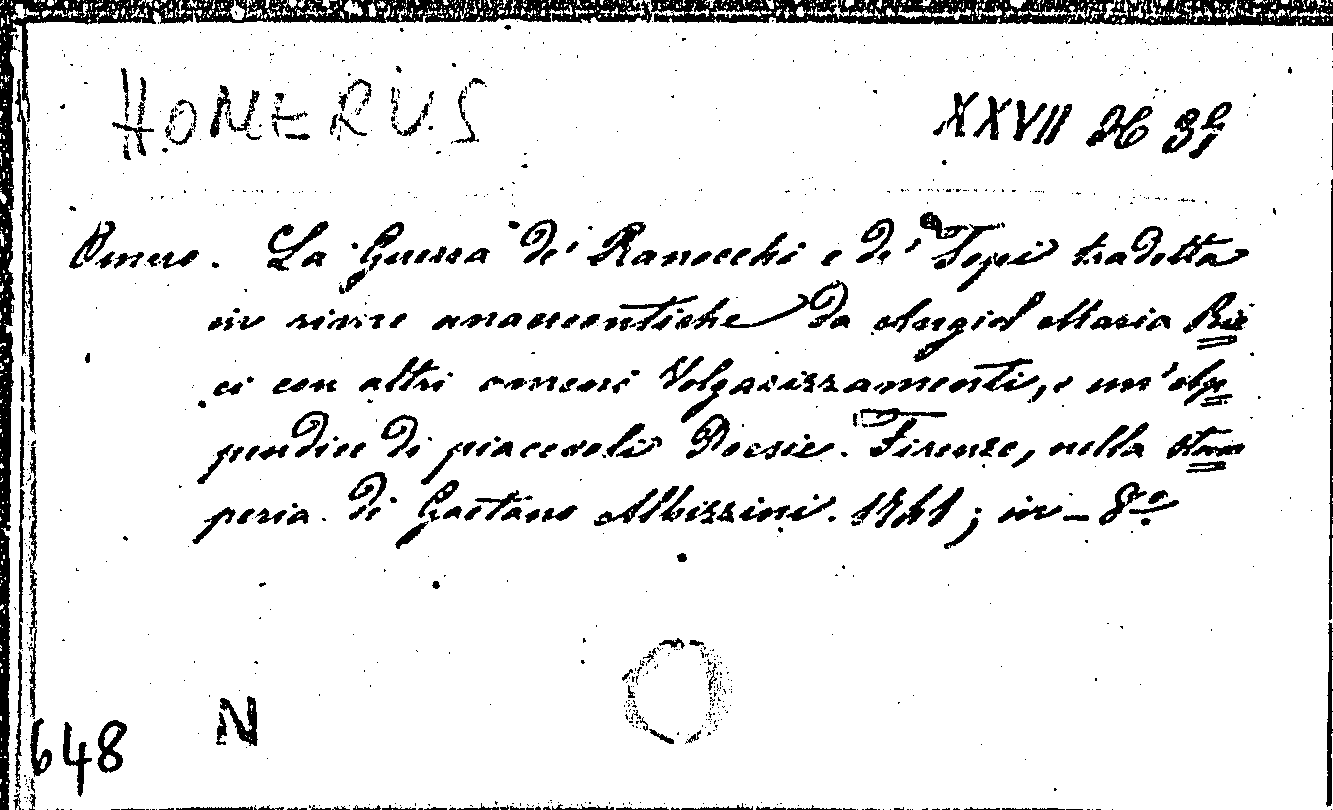 HOMERUS
XXVII
Omero. La Guerra de' Ranocchi e de' Topi tradotta
in rime anacreontiche da Angiol Maria Ric
ci con altri omerici Volgarizzamenti, e un' Ap
pendice di piacevoli Poesie. Firenze, nella stam
peria di Gaetano Albizzini. 1741; in-8º
648 N